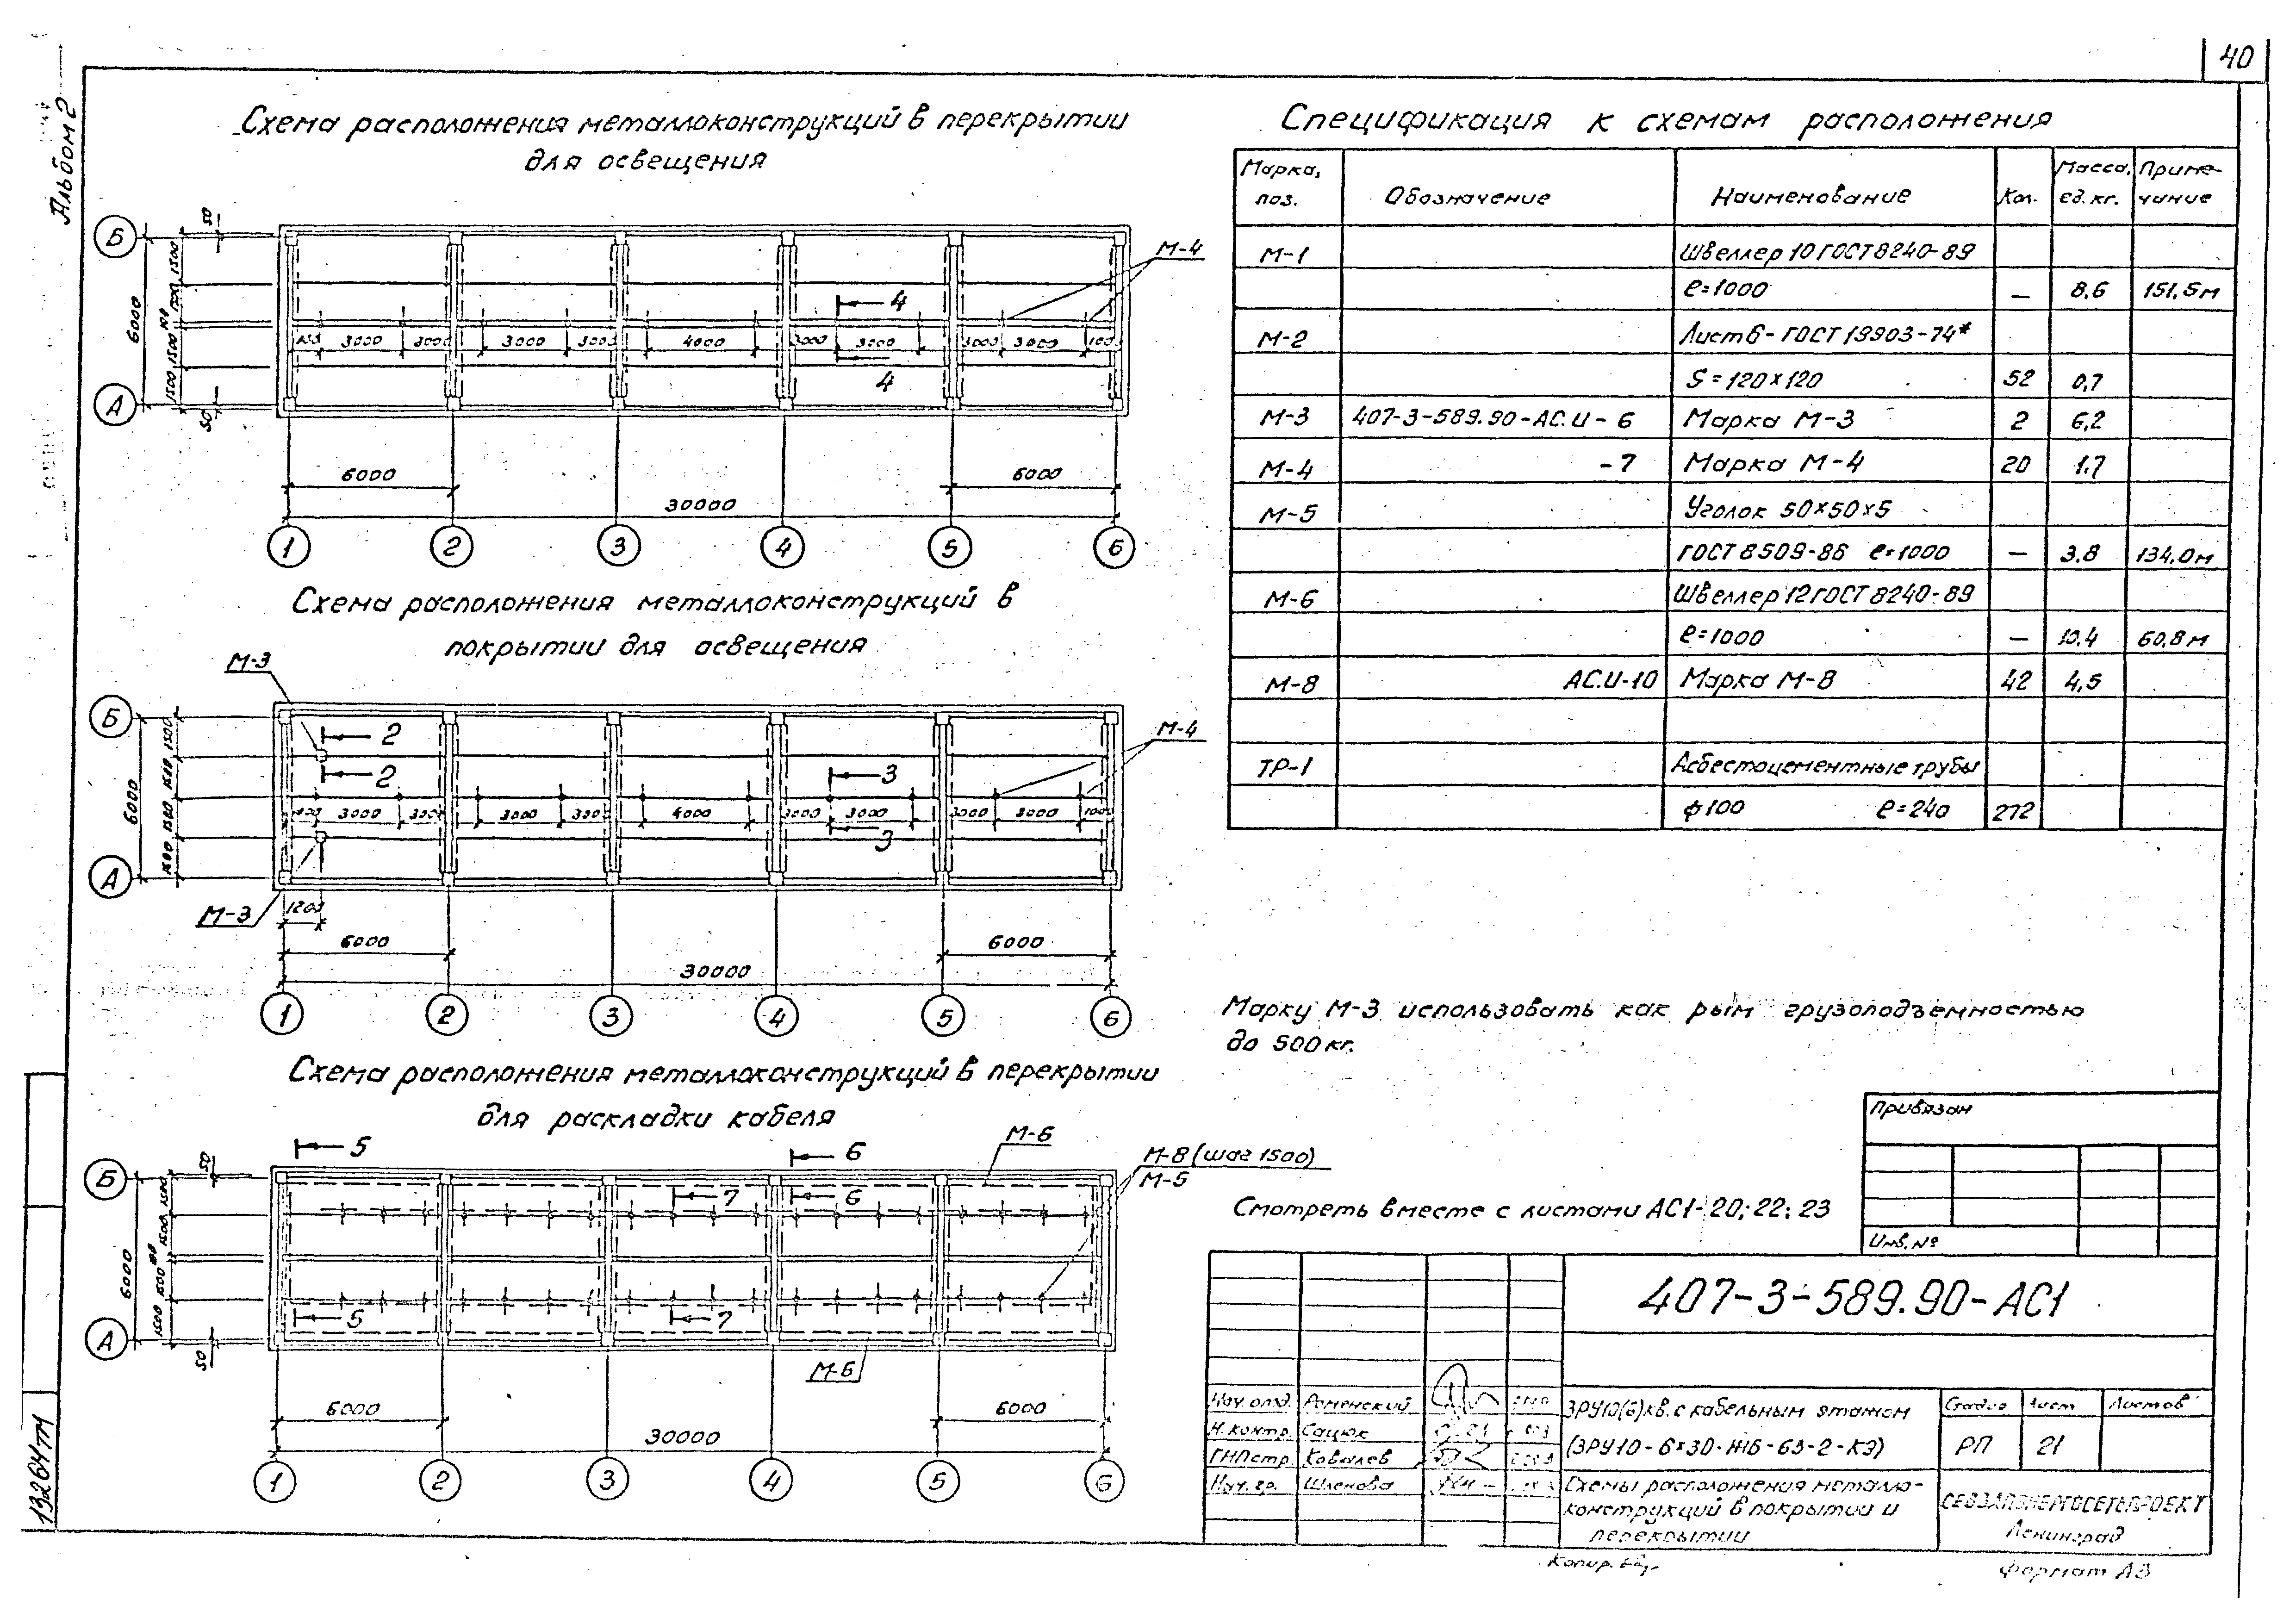 40
Альбом 2
Схема расположения металлоконструкций в перекрытии
для освещения
Б
А
50
1500
1500
100
1500
1500
50
6000
3000
3000
3000
3000
4000
3000
3000
3000
3000
1000
4
4
М-4
6000
6000
30000
1 2 3 4 5 6
Схема расположения металлоконструкций в
покрытии для освещения
М-3
Б
А
1500
1500
1500
1500
6000
2
2
3000
3000
3000
3000
4000
3000
3000
3000
3000
1000
3
3
М-4
М-3
1200
6000
6000
30000
1 2 3 4 5 6
Схема расположения металлоконструкций в перекрытии
для раскладки кабеля
5
6
М-6
М-8 (шаг 1500)
М-5
Б
А
50
1500
1500
100
1500
1500
50
6000
7
6
5
7
М-6
6000
6000
30000
1 2 3 4 5 6
Спецификация к схемам расположения
Марка, поз. Обозначение Наименование Кол. Масса, ед. кг. Приме-чание
М-1 Швеллер 10 ГОСТ 8240-89
ℓ=1000 — 8,6 151,5м
М-2 Лист 6-ГОСТ 19903-74*
S=120×120 52 0,7
М-3 407-3-589.90-АС.И-6 Марка М-3 2 6,2
М-4 -7 Марка М-4 20 1,7
М-5 Уголок 50×50×5
ГОСТ 8509-86 ℓ=1000 — 3.8 134,0м
М-6 Швеллер 12 ГОСТ 8240-89
ℓ=1000 — 10.4 60,8м
М-8 АС.И-10 Марка М-8 42 4,5
ТР-1 Асбестоцементные трубы
ф100 ℓ=240 272
Марку М-3 использовать как рым грузоподъемностью
до 500 кг.
Смотреть вместе с листами АС1-20; 22; 23
Привязан
Инв. №
407-3-589.90-АС1
Нач. отд. Роменский
Н. контр. Сацюк
ГИПстр. Ковалев
Нач. гр. Шленова
ЗРУ10(6)кв. с кабельным этажом
(ЗРУ10-6×30-ЖБ-63-2-КЭ)
Стадия Лист Листов
РП 21
Схемы расположения металло-
конструкций в покрытии и
перекрытии
СЕВЗАПЭНЕРГОСЕТЬПРОЕКТ
Ленинград
Копир.
Формат А3
13264тм